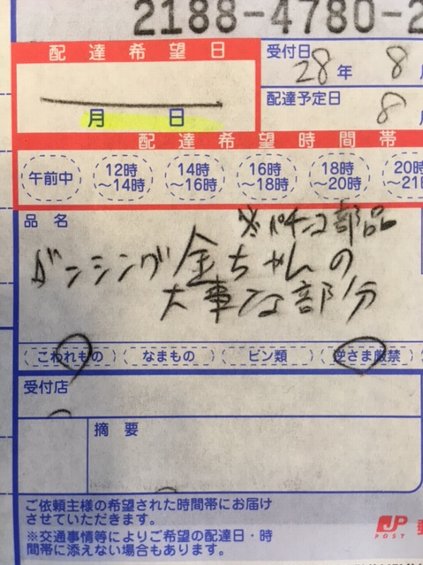 2188-4780-2
配達希望日
月 日
受付日
28年 8月
配達予定日
8
配達希望時間帯
午前中
12時~14時
14時~16時
16時~18時
18時~20時
20時~21
品名
※パチンコ部品
ダンシング金ちゃんの
大事な部分
こわれもの
なまもの
ビン類
逆さま厳禁
受付店
摘要
ご依頼主様の希望された時間帯にお届け
させていただきます。
※交通事情等によりご希望の配達日・時
間帯に添えない場合もあります。
JP
POST